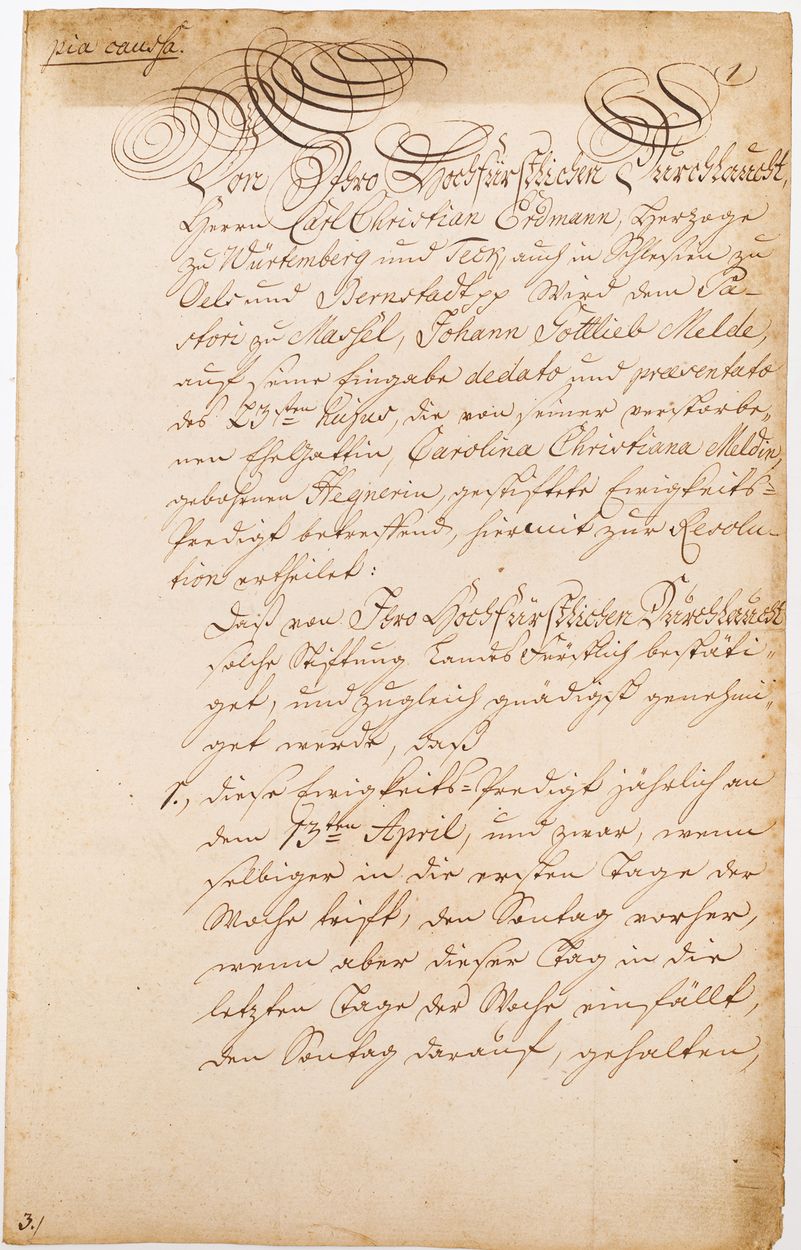 pia caussa.
1
Von Ihro Hochfürstlichen Durchlaucht,
Herrn Carl Christian Erdmann, Herzoge
zu Würtemberg und Teck, auch in Schlesien zu
Oels und Bernstadt pp Wird dem Pa-
stori zu Massel, Johann Gottlieb Melde,
auf seine Eingabe de dato und præsentato
des 23sten hujus, die von seiner verstorbe-
nen EheGattin, Carolina Christiana Meldin,
gebohrnen Hegnerin, gestiftete Ewigkeits-
Predigt betreffend, hiermit zur Resolu-
tion ertheilet:
Daß von Ihro Hochfürstlichen Durchlaucht
solche Stiftung LandesFürstlich bestäti-
get, und zugleich gnädigst genehmi-
get werde, daß
1., diese Ewigkeits-Predigt jährlich an
dem 13ten April, und zwar, wenn
selbiger in die ersten Tage der
Woche trift, den Sontag vorher,
wenn aber dieser Tag in die
letzten Tage der Woche einfällt,
den Sontag darauf, gehalten,
3./